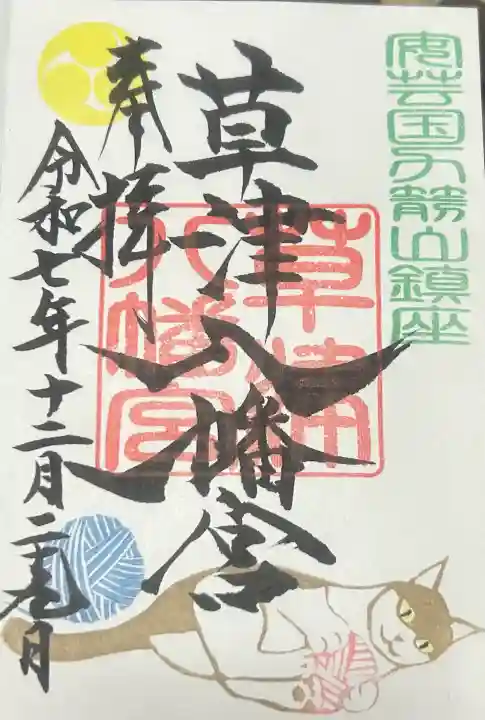 安芸国力勝山鎮座
草津八幡宮
草津
八幡宮
奉拝
令和七年十二月二